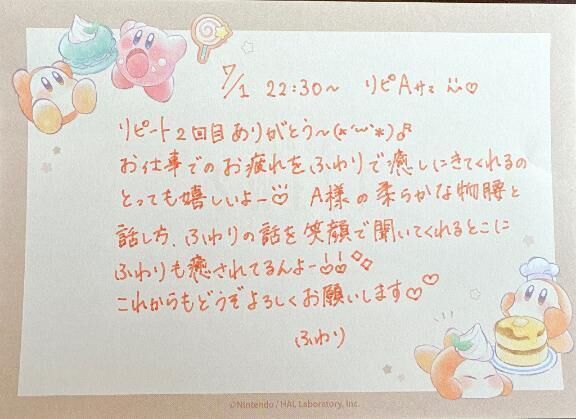 7/1 22:30〜 リピAサマ ♡
リピート2回目ありがとう〜(*´˘`*)♪
お仕事でのお疲れをふわりで癒しにきてくれるの
とっても嬉しいよー♡ A様の柔らかな物腰と
話し方、ふわりの話を笑顔で聞いてくれるとこに
ふわりも癒されてるんよー!!
これからもどうぞよろしくお願いします♡♡
ふわり
©Nintendo / HAL Laboratory, Inc.